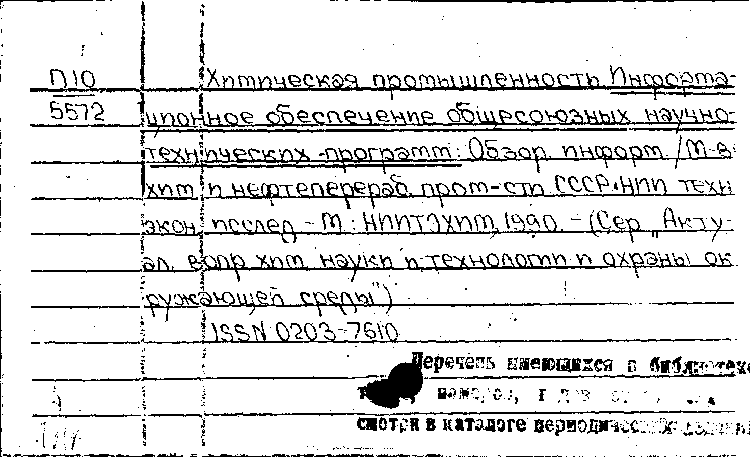 П10
5572
Химическая промышленность Информа-
ционное обеспечение общесоюзных научно-
технических программ: Обзор. информ. /М-во
хим. и нефтеперераб. пром-сти СССР. НИИ техн.
экон. исслед. - М.: НИИТЭХИМ, 1990. - (Сер. „Акту-
ал. вопр. хим. науки и технологии и охраны ок
ружающей среды")
ISSN 0203-7610
Перечень имеющихся в библиотеке
номеров,
смотри в каталоге периодических